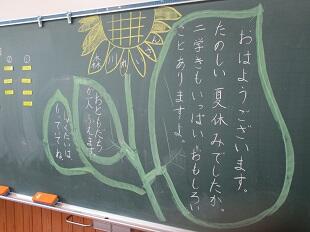 おはようございます。
たのしい夏休みでしたか。
二学きもいっぱいおもしろい
ことありますよ。
おともだち
が入ふえます。
していてね。
②
①